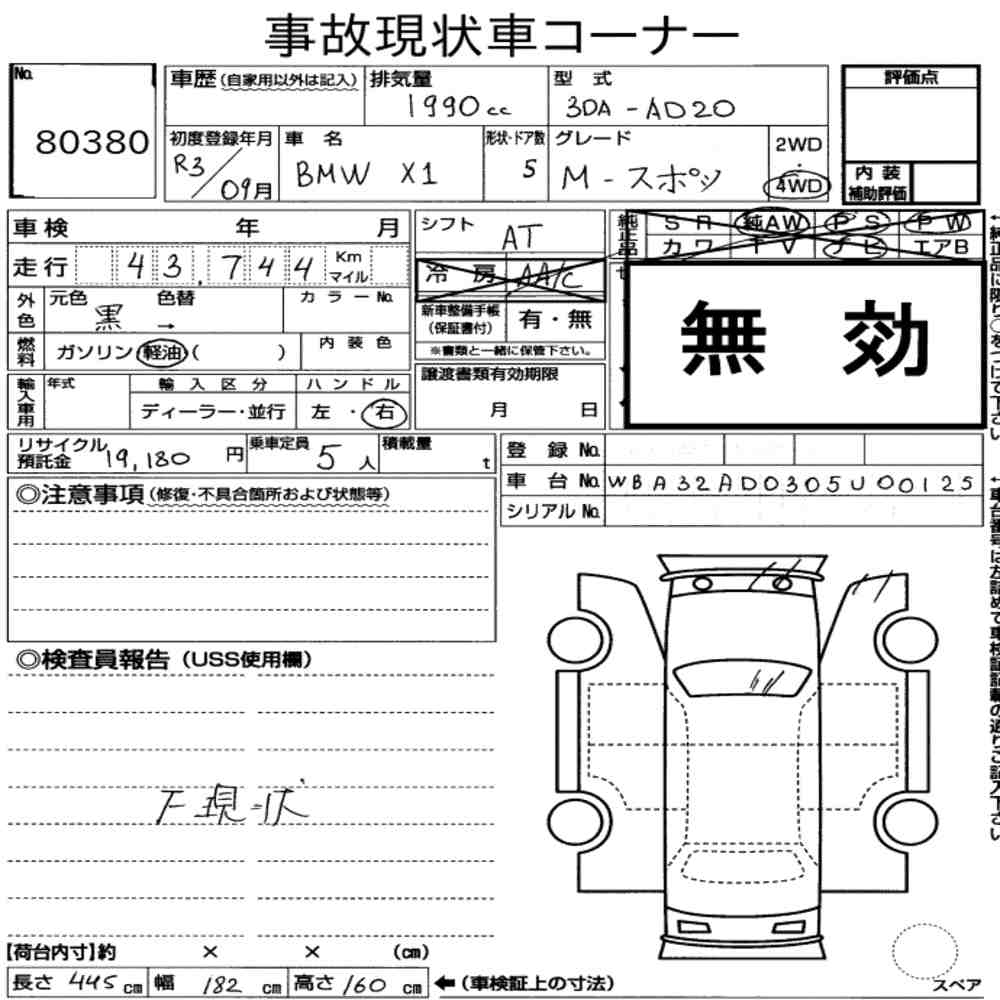 事故現状車コーナー
No. 80380
車歴 (自家用以外は記入)
排気量 1990 cc
型式 3DA - AD20
評価点
初度登録年月 R3/09月
車名 BMW X1
形状・ドア数 5
グレード M - スポッ
2WD ・ 4WD
内装補助評価
車検 年 月
走行 43,744 Km マイル
外色 元色 黒 色替 →
カラーNo.
燃料 ガソリン 軽油 ( )
内装色
輸入車用 年式
輸入区分 ディーラー・並行
ハンドル 左・右
シフト AT
冷房 AA/C
新車整備手帳 (保証書付) 有・無
※書類と一緒に保管下さい。
譲渡書類有効期限
月 日
純正品 SR 純AW PS PW
カワ TV ナビ エアB
無効
←純正品に限り○をつけて下さい
リサイクル預託金 19,180 円
乗車定員 5 人
積載量 t
登録 No.
車台 No. WBA32AD0305U00125
シリアル No.
←車台番号は左詰めで車検証記載の通りご記入下さい
◎注意事項 (修復・不具合箇所および状態等)
◎検査員報告 (USS使用欄)
【荷台内寸】約 × × (cm)
長さ 445 cm 幅 182 cm 高さ 160 cm ←(車検証上の寸法)
スペア